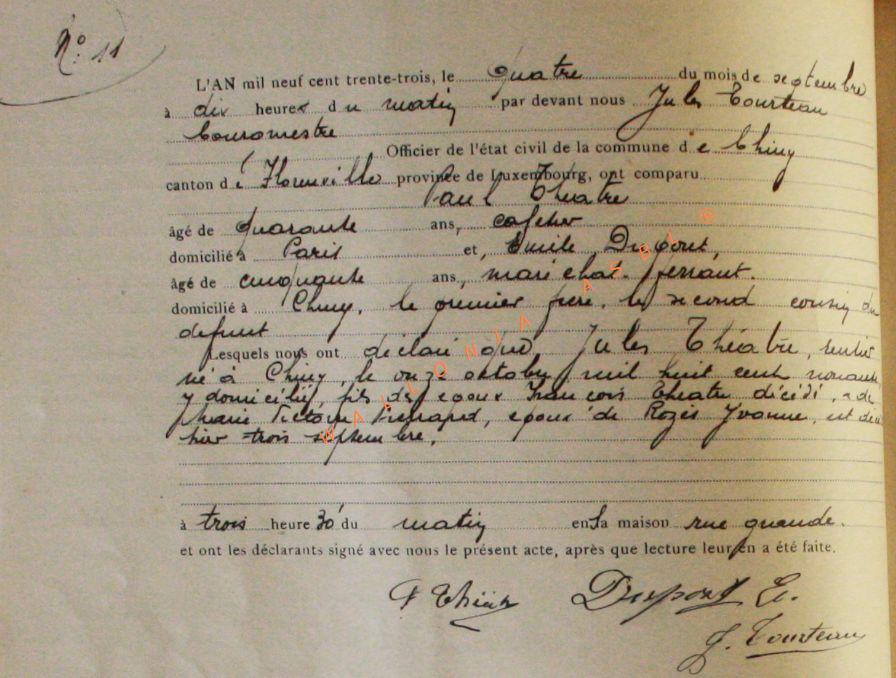 N° 11
L'AN mil neuf cent trente-trois, le quatre du mois de septembre
à dix heures du matin par devant nous Jules Tourteau
bourgmestre
Officier de l'état civil de la commune de Chiny
canton de Florenville province de Luxembourg, ont comparu
Paul Théatre
âgé de quarante ans, cafetier
domicilié à Paris et, Emile Dupont,
âgé de cinquante ans, maréchal ferrant.
domicilié à Chiny, le premier frère, le second cousin du
défunt
Lesquels nous ont déclaré que Jules Théatre, rentier
né à Chiny, le onze octobre mil huit cent nonante
y domicilié, fils des époux François Théatre décédé, et de
Marie Victoire, époux de Rozès Yvonne, est
hier trois septembre.
à trois heure 30' du matin en sa maison rue grande.
et ont les déclarants signé avec nous le présent acte, après que lecture leur en a été faite.
P Théatre Dupont E.
J. Tourteau
WALLONIA ASBL ©